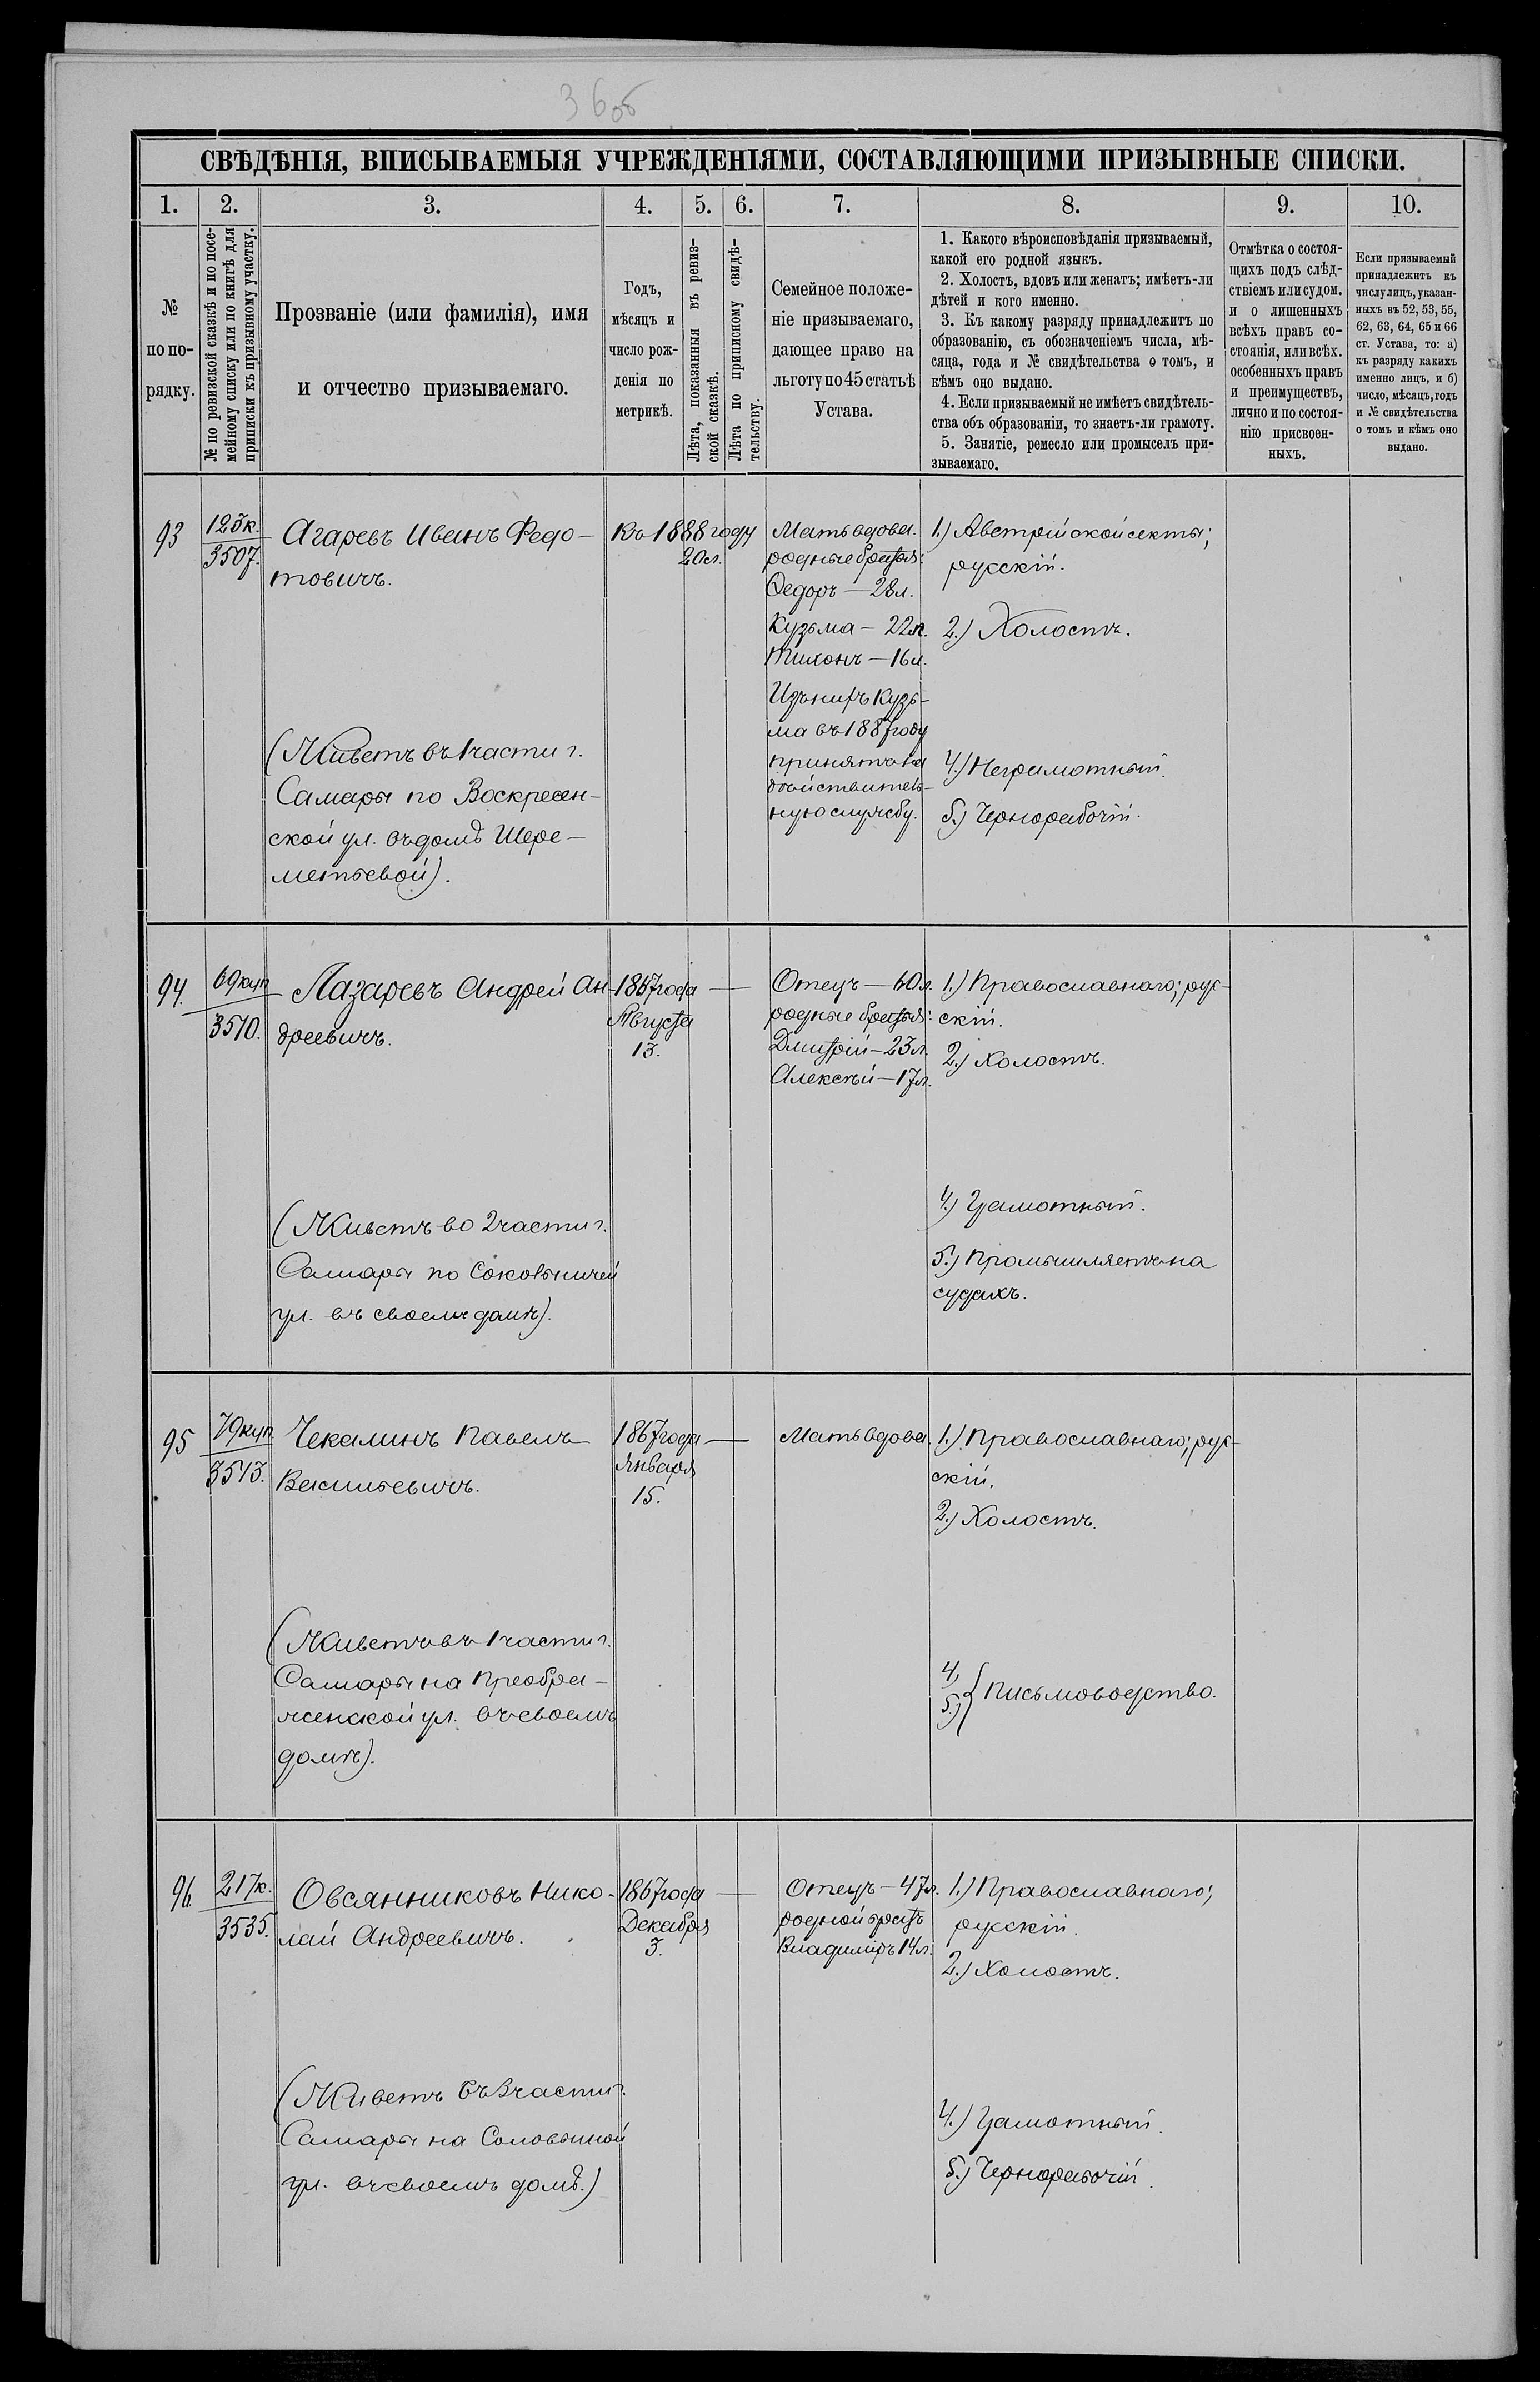 36об
СВѢДѢНІЯ, ВПИСЫВАЕМЫЯ УЧРЕЖДЕНІЯМИ, СОСТАВЛЯЮЩИМИ ПРИЗЫВНЫЕ СПИСКИ.
1. 2. 3. 4. 5. 6. 7. 8. 9. 10.
№
по по-
рядку.
№ по ревизской сказкѣ и по посе-
мейному списку или по книгѣ для
приписки къ призывному участку.
Прозваніе (или фамилія), имя
и отчество призываемаго.
Годъ,
мѣсяцъ и
число рож-
денія по
метрикѣ.
Лѣта, показанныя въ ревиз-
ской сказкѣ.
Лѣта по приписному свидѣ-
тельству.
Семейное положе-
ніе призываемаго,
дающее право на
льготу по 45 статьѣ
Устава.
1. Какого вѣроисповѣданія призываемый,
какой его родной языкъ.
2. Холостъ, вдовъ или женатъ; имѣетъ-ли
дѣтей и кого именно.
3. Къ какому разряду принадлежитъ по
образованію, съ обозначеніемъ числа, мѣ-
сяца, года и № свидѣтельства о томъ, и
кѣмъ оно выдано.
4. Если призываемый не имѣетъ свидѣтель-
ства объ образованіи, то знаетъ-ли грамоту.
5. Занятіе, ремесло или промыселъ при-
зываемаго.
Отмѣтка о состоя-
щихъ подъ слѣд-
ствіемъ или судом.
и о лишенныхъ
всѣхъ правъ со-
стоянія, или всѣх.
особенныхъ правъ
и преимуществъ,
лично и по состоя-
нію присвоен-
ныхъ.
Если призываемый
принадлежитъ къ
числу лицъ, указан-
ныхъ въ 52, 53, 55,
62, 63, 64, 65 и 66
ст. Устава, то: а)
къ разряду какихъ
именно лицъ, и б)
число, мѣсяцъ, годъ
и № свидѣтельства
о томъ и кѣмъ оно
выдано.
93
125к.
3507.
Агаревъ Иванъ Федо-
товичъ.
(Живетъ въ 1 части г.
Самары по Воскресен-
ской ул. въ домѣ Шере-
метьевой).
Къ 1888 году
20л.
Мать вдова.
родные братья:
Федоръ — 28л.
Кузьма — 22л.
Тихонъ — 16л.
Изъ нихъ Кузь-
ма въ 1887 году
принятъ на
дѣйствитель-
ную службу.
1.) Австрійской секты;
русскій.
2.) Холостъ.
4.) Неграмотный.
5.) Чернорабочій.
94.
69куп
3510.
Лазаревъ Андрей Ан-
дреевичъ.
(Живетъ во 2 части г.
Самары по Соковьничей
ул. въ своемъ домѣ).
1867 года
Августа
13.
Отецъ — 60л.
родные братья:
Дмитрій — 23л.
Алексѣй — 17л.
1.) Православнаго; рус-
скій.
2.) Холостъ.
4.) Грамотный.
5.) Промышляетъ на
судахъ.
95
79куп.
3513.
Чекалинъ Павелъ
Васильевичъ.
(Живетъ въ 1 части г.
Самары на Преобра-
женской ул. въ своемъ
домѣ).
1867 года
Января
15.
Мать вдова.
1.) Православнаго; рус-
скій.
2.) Холостъ.
4)
5.) } Письмоводство.
96.
217к.
3535.
Овсянниковъ Нико-
лай Андреевичъ.
(Живетъ въ 3 части г.
Самары на Соловьиной
ул. въ своемъ домѣ.)
1867 года
Декабря
3.
Отецъ — 47л.
родной братъ
Владиміръ 14л.
1.) Православнаго;
русскій.
2.) Холостъ.
4.) Грамотный.
5.) Чернорабочій.